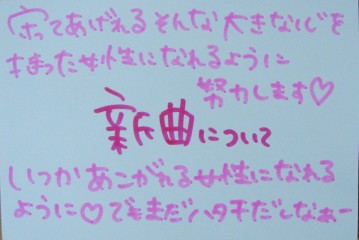 守ってあげれるそんな大きな心を
もまった女性になれるように
努力します♡
新曲について
いつかあこがれる女性になれる
ように♡でもまだハタチだしなぁー